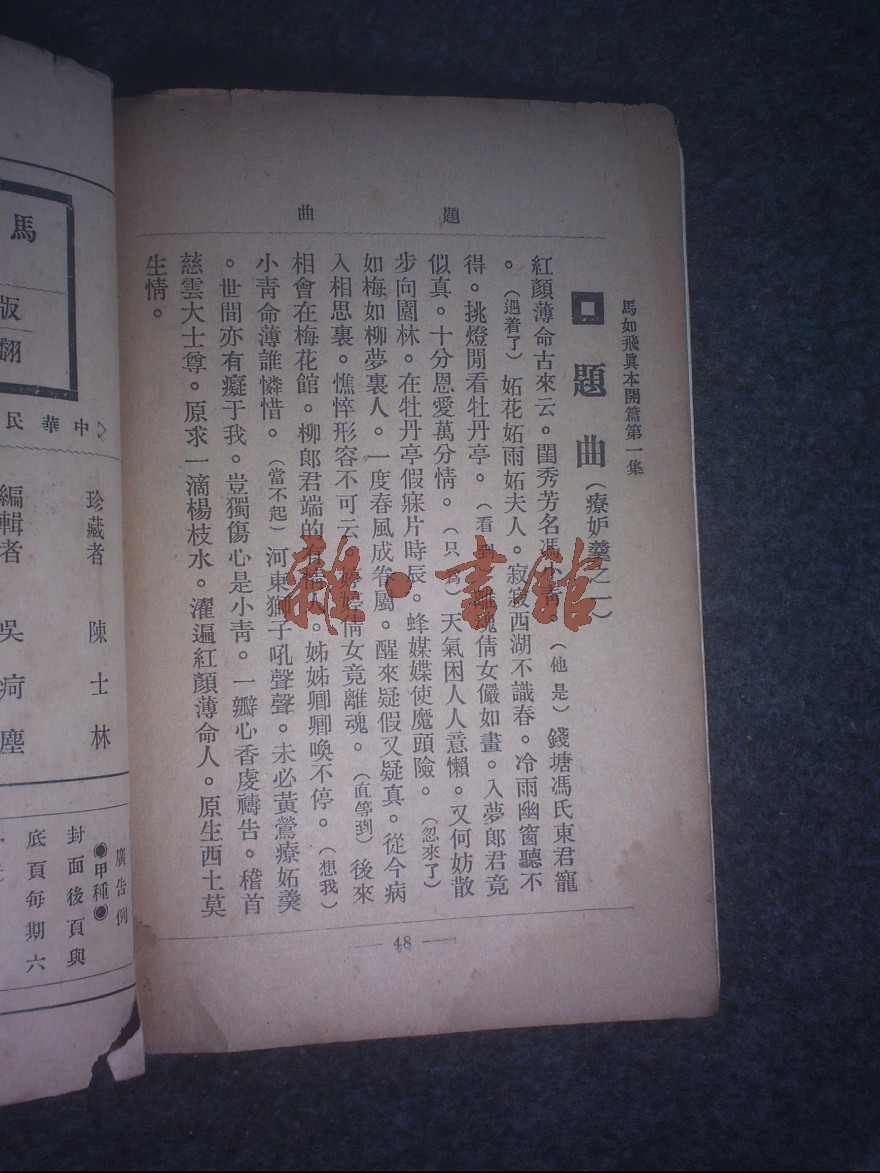 馬如飛眞本開篇第一集
題曲
題曲（療妒羹之一）
紅顏薄命古來云。閨秀芳名馮小青。（他是）錢塘馮氏東君寵
。（遇着了）妬花妬雨妬夫人。寂寂西湖不識春。冷雨幽窗聽不
得。挑燈閒看牡丹亭。（看到）離魂倩女儼如畫。入夢郎君竟
似真。十分恩愛萬分情。（只為）天氣困人人意懶。又何妨散
步向園林。在牡丹亭假寐片時辰。蜂媒蝶使魔頭險。（忽來了）
如梅如柳夢裏人。一度春風成眷屬。醒來疑假又疑真。從今病
入相思裏。憔悴形容不可云。倩女竟離魂。（直等到）後來
相會在梅花館。柳郎君端的有情人。姊姊卿卿喚不停。（想我）
小靑命薄誰憐惜。（當不起）河東獅子吼聲聲。未必黃鶯療妬羹
。世間亦有癡于我。豈獨傷心是小靑。一瓣心香虔禱告。稽首
慈雲大士尊。原求一滴楊枝水。灑遍紅顏薄命人。原生西土莫
生情。
48
馬
版
翻
中華民
珍藏者 陳士林
編輯者 吳疴塵
廣告例
◉甲種◉
封面後頁與
底頁每期六
雜·書館